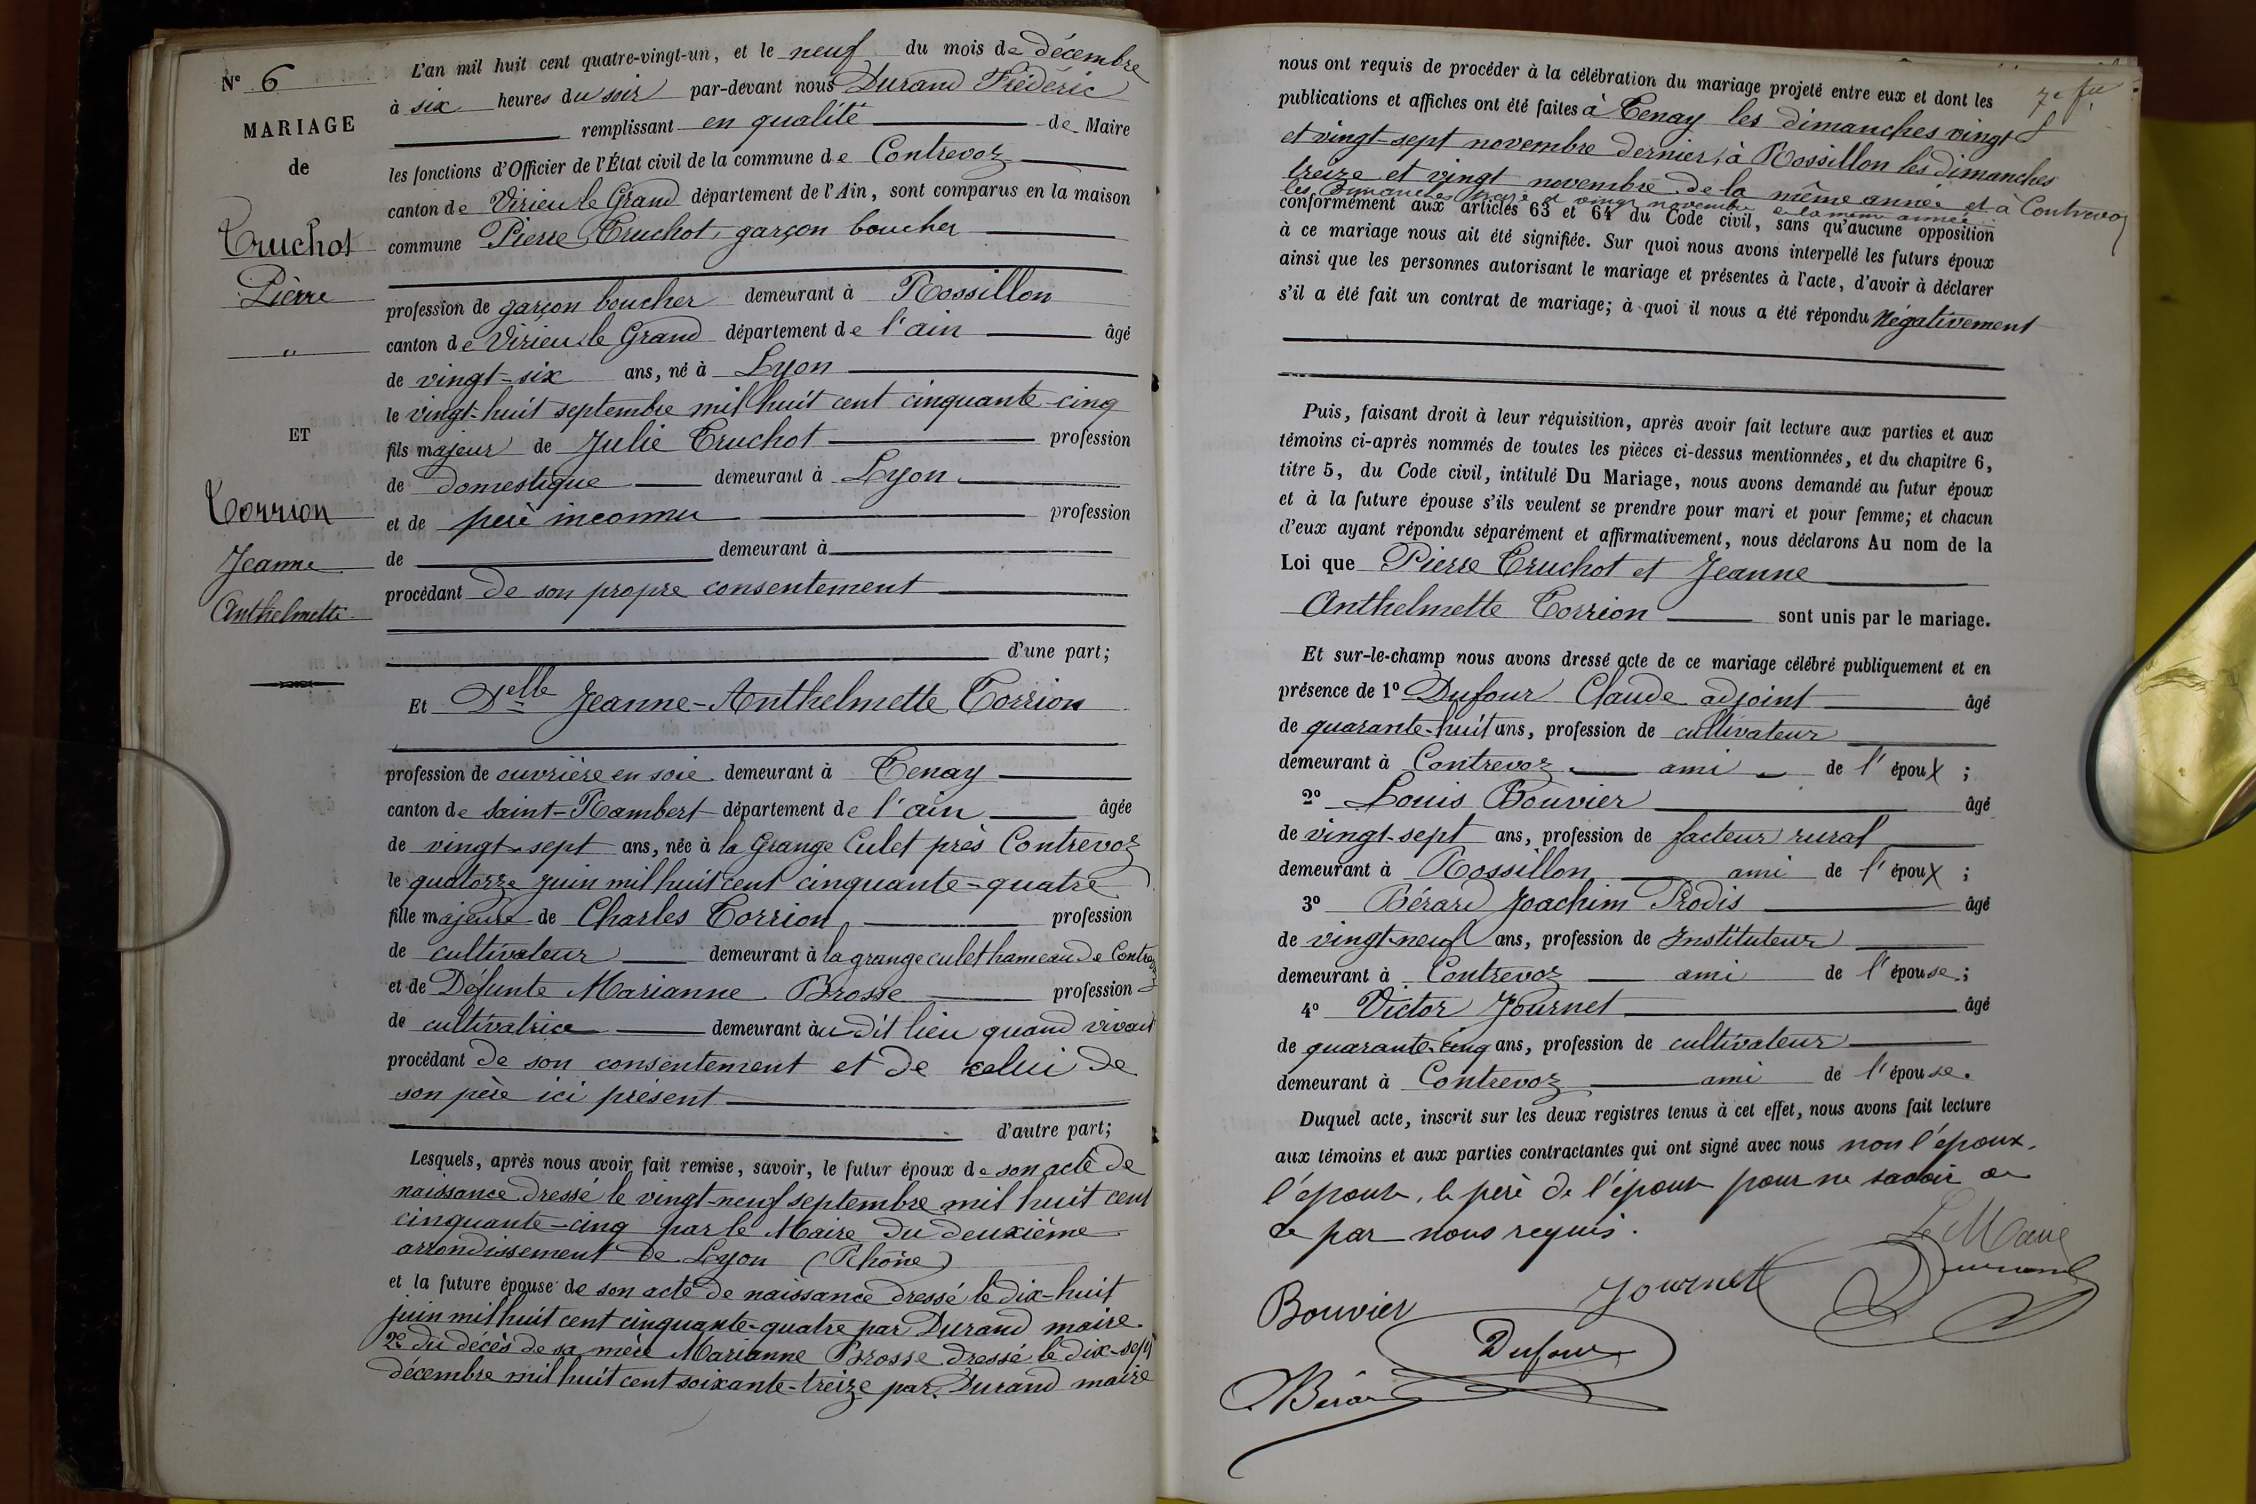 N° 6
MARIAGE
de
Truchot
Pierre
"
ET
Torrion
Jeanne
Anthelmette
L'an mil huit cent quatre-vingt-un, et le neuf du mois de décembre
à six heures du soir par-devant nous Durand Frédéric
remplissant en qualité de Maire
les fonctions d'Officier de l'État civil de la commune de Contrevoz
canton de Virieu le Grand département de l'Ain, sont comparus en la maison
commune Pierre Truchot, garçon boucher
profession de garçon boucher demeurant à Rossillon
canton de Virieu le Grand département de l'ain âgé
de vingt-six ans, né à Lyon
le vingt-huit septembre mil huit cent cinquante-cinq
fils majeur de Julie Truchot profession
de domestique demeurant à Lyon
et de père inconnu profession
de demeurant à
procédant de son propre consentement
d'une part;
Et Delle Jeanne-Anthelmette Torrion
profession de ouvrière en soie demeurant à Tenay
canton de Saint-Rambert département de l'ain âgée
de vingt-sept ans, née à la Grange Culet près Contrevoz
le quatorze juin mil huit cent cinquante-quatre
fille majeure de Charles Torrion profession
de cultivateur demeurant à la grange culet hameau de Contrevoz
et de Défunte Marianne Brosse profession
de cultivatrice demeurant au dit lieu quand vivait
procédant de son consentement et de celui de
son père ici présent
d'autre part;
Lesquels, après nous avoir fait remise, savoir, le futur époux de son acte de
naissance dressé le vingt-neuf septembre mil huit cent
cinquante-cinq par le Maire du deuxième
arrondissement de Lyon (Rhône)
et la future épouse de son acte de naissance dressé le dix-huit
juin mil huit cent cinquante-quatre par Durand maire
2° du décès de sa mère Marianne Brosse dressé le dix-sept
décembre mil huit cent soixante-treize par Durand maire
7e fet
nous ont requis de procéder à la célébration du mariage projeté entre eux et dont les
publications et affiches ont été faites à Tenay les dimanches vingt
et vingt-sept novembre dernier, à Rossillon les dimanches
treize et vingt novembre de la même année et à Contrevoz
les dimanches treize et vingt novembre de la même année
conformément aux articles 63 et 64 du Code civil, sans qu'aucune opposition
à ce mariage nous ait été signifiée. Sur quoi nous avons interpellé les futurs époux
ainsi que les personnes autorisant le mariage et présentes à l'acte, d'avoir à déclarer
s'il a été fait un contrat de mariage; à quoi il nous a été répondu Négativement
Puis, faisant droit à leur réquisition, après avoir fait lecture aux parties et aux
témoins ci-après nommés de toutes les pièces ci-dessus mentionnées, et du chapitre 6,
titre 5, du Code civil, intitulé Du Mariage, nous avons demandé au futur époux
et à la future épouse s'ils veulent se prendre pour mari et pour femme; et chacun
d'eux ayant répondu séparément et affirmativement, nous déclarons Au nom de la
Loi que Pierre Truchot et Jeanne
Anthelmette Torrion sont unis par le mariage.
Et sur-le-champ nous avons dressé acte de ce mariage célébré publiquement et en
présence de 1° Dufour Claude adjoint âgé
de quarante-huit ans, profession de cultivateur
demeurant à Contrevoz ami de l'époux ;
2° Louis Bouvier âgé
de vingt-sept ans, profession de facteur rural
demeurant à Rossillon ami de l'époux ;
3° Bérard Joachim Prodis âgé
de vingt-neuf ans, profession de Instituteur
demeurant à Contrevoz ami de l'épouse ;
4° Victor Journet âgé
de quarante-cinq ans, profession de cultivateur
demeurant à Contrevoz ami de l'épouse.
Duquel acte, inscrit sur les deux registres tenus à cet effet, nous avons fait lecture
aux témoins et aux parties contractantes qui ont signé avec nous non l'époux,
l'épouse, le père de l'épouse pour ne savoir de
ce par nous requis.
Le Maire
Durand
Journet
Bouvier
Dufour
Bérard